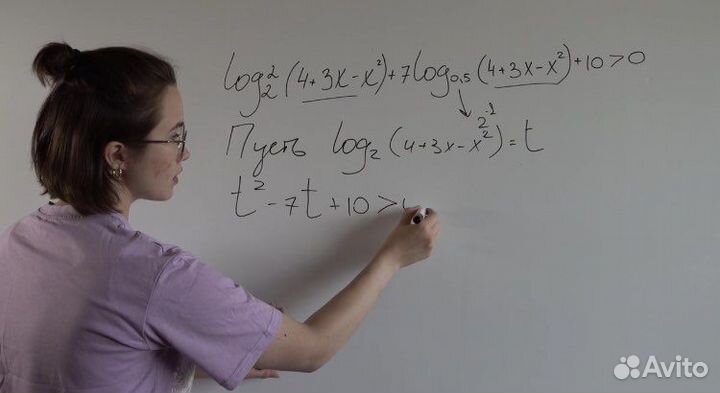 log₂²(4+3x-x²)+7log₀,₅(4+3x-x²)+10>0
2⁻¹
Пусть log₂(4+3x-x²)=t
t²-7t+10>
Avito